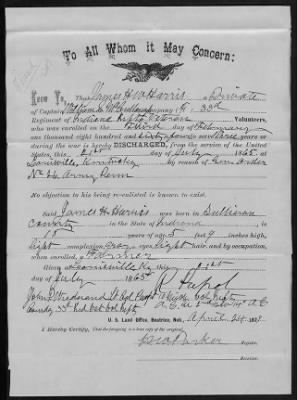 To All Whom it May Concern:
Know Ye, That James H Harris a Private
of Captain William S McCullough Company H. 33rd
Regiment of Indiana Vet Veteran Volunteers,
who was enrolled on the day of February
one thousand eight hundred and sixty to serve three years or
during the war is hereby DISCHARGED, from the service of the United
States, this 21st day of July 1865 at
Louisville Kentucky by reason of Order
No 26 Army Tenn
No objection to his being re-enlisted is known to exist.
Said James H Harris was born in Sullivan
County in the State of Indiana, is
18 years of age, 5 feet 9 inches high,
light complexion, Gray eyes, light hair, and by occupation,
when enrolled, a Farmer
Given at Louisville Ky this 21st
day of July 1865
U. S. Land Office, Beatrice, Neb., April 24 187
I Hereby Certify, That the foregoing is a true copy of the original.
Register.
Receiver.